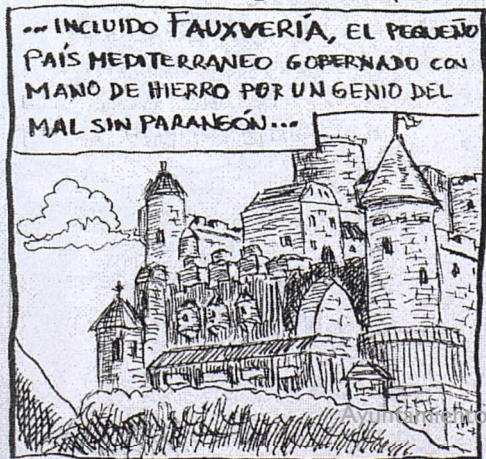 ... INCLUIDO FAUXVERÍA, EL PEQUEÑO
PAÍS MEDITERRANEO GOBERNADO CON
MANO DE HIERRO POR UN GENIO DEL
MAL SIN PARANGÓN...
Ayuntamiento